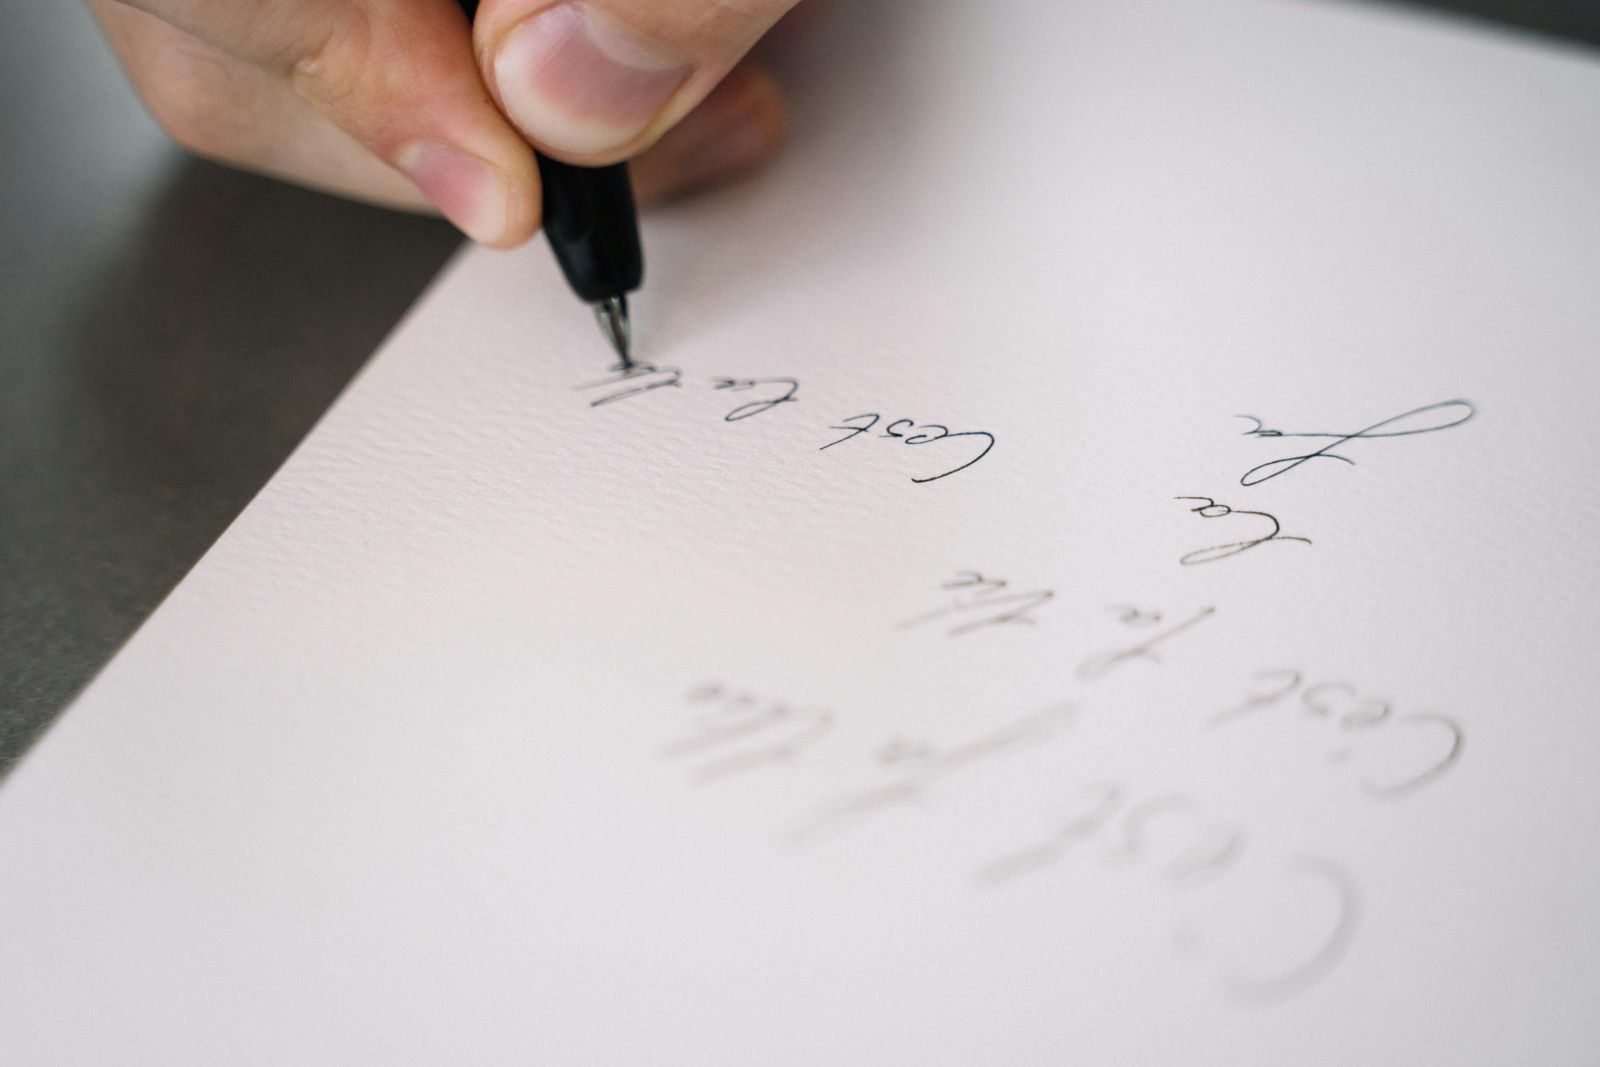 C'est la Vie
C'est la Vie
la
la
Cest la Vi